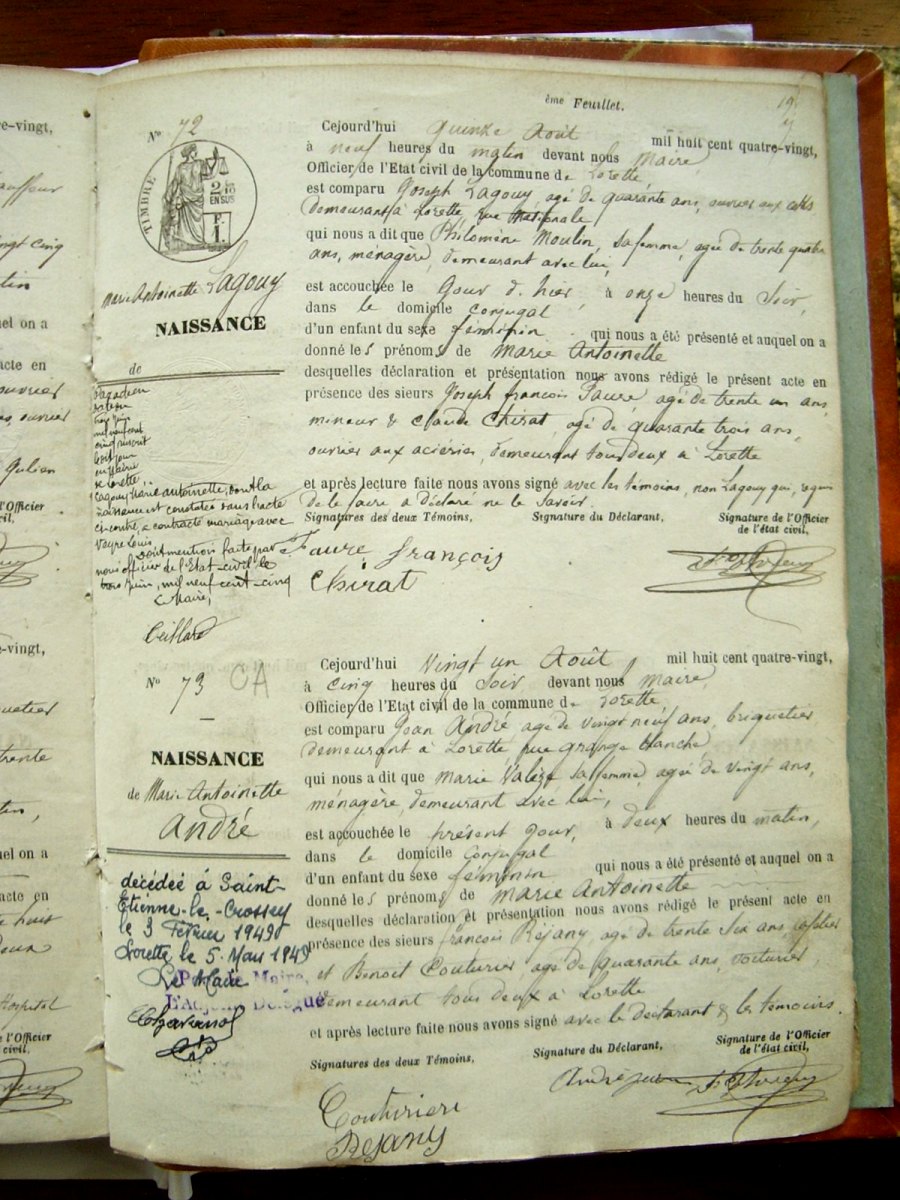 re-vingt,
ème Feuillet.
N° 72
TIMBRE
EN SUS
Marie Antoinette Lagouy
NAISSANCE
de
Cejourd'hui quinze Août mil huit cent quatre-vingt,
à neuf heures du matin devant nous Maire
Officier de l'Etat civil de la commune de Lorette
est comparu Joseph Lagouy, agé de quarante ans, ouvrier aux
demeurant à Lorette, rue Nationale
qui nous a dit que Philomène Moulin, sa femme, agée de trente quatre
ans, ménagère, demeurant avec lui,
est accouchée le Jour d'hier, à onze heures du Soir,
dans le domicile Conjugal
d'un enfant du sexe féminin qui nous a été présenté et auquel on a
donné les prénoms de Marie Antoinette
desquelles déclaration et présentation nous avons rédigé le présent acte en
présence des sieurs Joseph françois Faure agé de trente un ans,
mineur & Claude Chirat agé de quarante trois ans,
ouvriers aux aciéries, demeurant tous deux à Lorette
et après lecture faite nous avons signé avec les témoins, non Lagouy qui, requis
de le faire a déclaré ne le savoir.
Signatures des deux Témoins, Signature du Déclarant, Signature de l'Officier
de l'état civil,
Faure françois
Chirat
trois juin
mil neuf cent
cinq inscrit
en Mairie
de Lorette
Lagouy Marie Antoinette, dont la
naissance est constatée dans l'acte
ci-contre, a contracté mariage avec
Veyre Louis
Dont mention faite par
nous officier de l'Etat-civil le
trois Juin, mil neuf cent-cinq
Le Maire,
N° 73 CA
NAISSANCE
de Marie Antoinette
André
Cejourd'hui Vingt un Août mil huit cent quatre-vingt,
à cinq heures du Soir devant nous Maire
Officier de l'Etat civil de la commune de Lorette
est comparu Jean André agé de vingt neuf ans, briquetier,
demeurant à Lorette, rue grange blanche
qui nous a dit que Marie sa femme, agée de vingt ans,
ménagère, demeurant avec lui,
est accouchée le présent Jour, à deux heures du matin,
dans le domicile Conjugal
d'un enfant du sexe féminin qui nous a été présenté et auquel on a
donné les prénoms de Marie Antoinette
desquelles déclaration et présentation nous avons rédigé le présent acte en
présence des sieurs françois Réjany, agé de trente six ans,
et Benoit Couturier, agé de quarante ans, voiturier,
demeurant tous deux à Lorette
et après lecture faite nous avons signé avec le déclarant & les témoins.
Signatures des deux Témoins, Signature du Déclarant, Signature de l'Officier
de l'état civil,
André jean
Couturier
Rejany
décédée à Saint-
Etienne-le-Crossey
le 3 Février 1949
Lorette le 5 Mars 1949
Le Maire
P. le Maire,
L'Adjoint Délégué